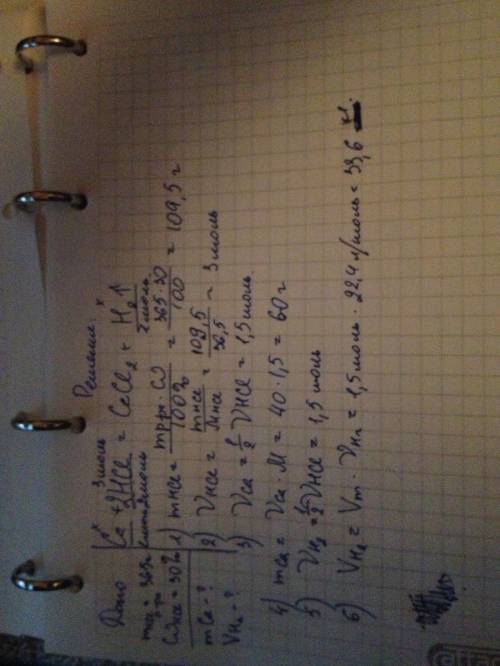 Дано
Решение:
m р-ра = 365г
ω HCl = 30%
m Ca - ?
V H₂ - ?
x 3моль x
Ca + 2HCl = CaCl₂ + H₂↑
1моль 2моль 1моль
1) mHCl = mр-ра · ω / 100% = 365·30 / 100 = 109,5 г
2) νHCl = mHCl / MHCl = 109,5 / 36,5 = 3 моль
3) νCa = 1/2 νHCl = 1,5 моль
4) mCa = νCa · M = 40 · 1,5 = 60 г
5) νH₂ = 1/2 νHCl = 1,5 моль
6) VH₂ = Vm · νH₂ = 1,5 моль · 22,4 л/моль = 33,6 л.